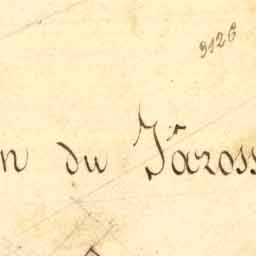 3126
n du Jaross